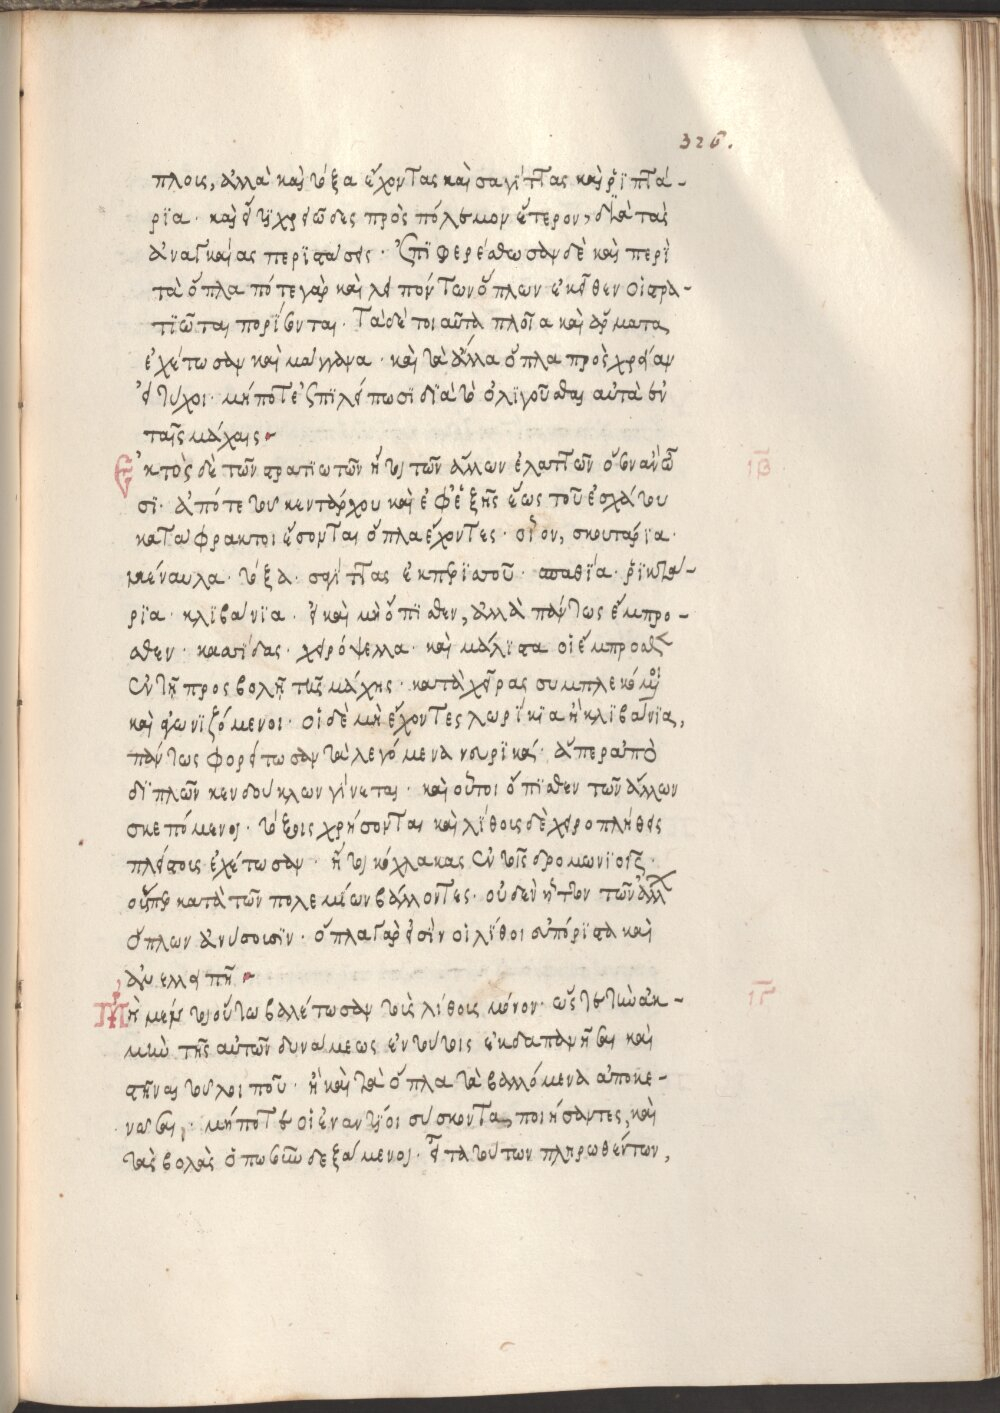 326.
πλοις, ἀλλὰ καὶ τόξα ἔχοντας καὶ σαγίττας καὶ ῥϊπτά-
ρϊα· καὶ εἴ τι χρεῶδες πρὸς πόλεμον ἕτερον, διὰ τὰς
ἀναγκαίας περϊστάσεις· Ἐπϊφερέσθωσαν δὲ καὶ περὶ
τὰ ὅπλα πότε γὰρ καὶ λειπόντων ὅπλων ἐκεῖθεν οἱ στρα-
τϊῶται πορίζονται· Τὰ δέ τοι αὐτὰ πλοῖα καὶ ἅρματα
ἐχέτωσαν καὶ μάγγανα· καὶ τὰ ἄλλα ὅπλα πρὸς χρείαν
εἰ τύχοι· μήποτε ἐπϊλείπωσϊ διὰ τὸ ὀλιγοῦσθαι αὐτὰ ἐν
ταῖς μάχαις·
Ἐκτὸς δὲ τῶν στρατϊωτῶν ἤτοι τῶν ἄλλων ἐλαττῶν
σι· ἀπό τε τοῦ κεντάρχου καὶ ἐφεξῆς ἕως τοῦ ἐσχάτου
κατάφρακτοι ἔσονται ὅπλα ἔχοντες· οἷον, σκουτάρϊα·
μέναυλα· τόξα· σαγίττας ἐκ περϊσσοῦ· σπαθία· ῥϊκτά-
ρϊα· κλϊβάνϊα· εἰ καὶ μὴ ὄπϊσθεν, ἀλλὰ πάντως ἔμπρο-
σθεν· κασσίδας· χειρόψελλα· καὶ μάλϊστα οἱ ἔμπροσθεν
ἐν τῇ προσβολῇ τῆς μάχης· κατὰ χεῖρας συμπλεκόμενοι
καὶ ἀγωνϊζόμενοι· Οἱ δὲ μὴ ἔχοντες λωρίκϊα ἢ κλϊβάνϊα,
πάντως φορείτωσαν τὰ λεγόμενα νευρϊκά· ἅπερ ἀπὸ
διπλῶν κενδούκλων γίνεται· καὶ οὗτοι ὄπϊσθεν τῶν ἄλλων
σκεπόμενοι· τόξοις χρήσονται καὶ λίθοις δὲ χειροπληθεῖς
πλείστοις ἐχέτωσαν· ἤτοι κόχλακας ἐν τοῖς δρομωνίοις·
οὕσπερ κατὰ τῶν πολεμίων βάλλοντες· οὐδὲν ἧττον τῶν ἄλλων
ὅπλων ἀνύσουσϊν· ὅπλα γάρ εἰσϊν οἱ λίθοι εὐπόρϊστα καὶ
ἀνελλειπῆ·
Μὴ μέντοι οὕτω βαλέτωσαν τοὺς λίθους μόνον· ὥστε τὴν ἀκ-
μὴν τῆς αὐτῶν δυνάμεως ἐν τούτοις ἐκδαπανῆσαι καὶ
στῆναι τοῦ λοιποῦ· ἢ καὶ τὰ ὅπλα τὰ βαλλόμενα ἀποκε-
νῶσαι· μήποτε οἱ ἐναντίοι συσκουτα ποιήσαντες, καὶ
τὰς βολὰς ὑποδεξάμενοι· εἶτα τούτων πληρωθέντων,
ιβ
ιγ